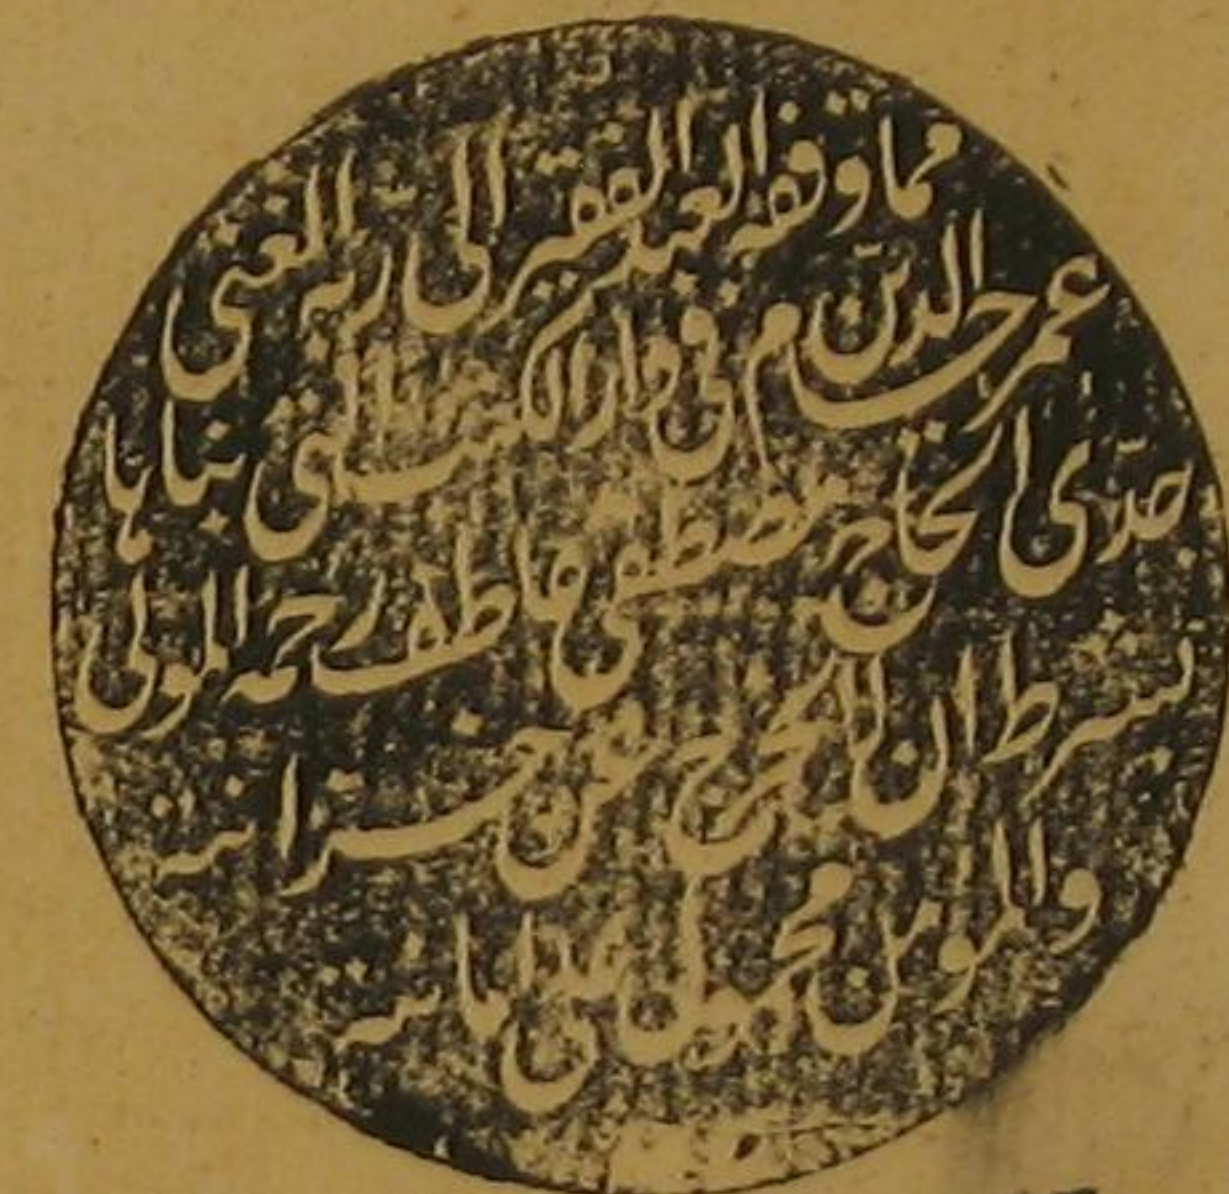 مما وقفه العبد الفقير الى ربه الغني
عمر حسام الدين في دار الكتب التي بناها
جدي الحاج مصطفى عاطف رحمه المولى
بشرط ان لا يخرج عن خزانته
والمؤمن محمول على امانته